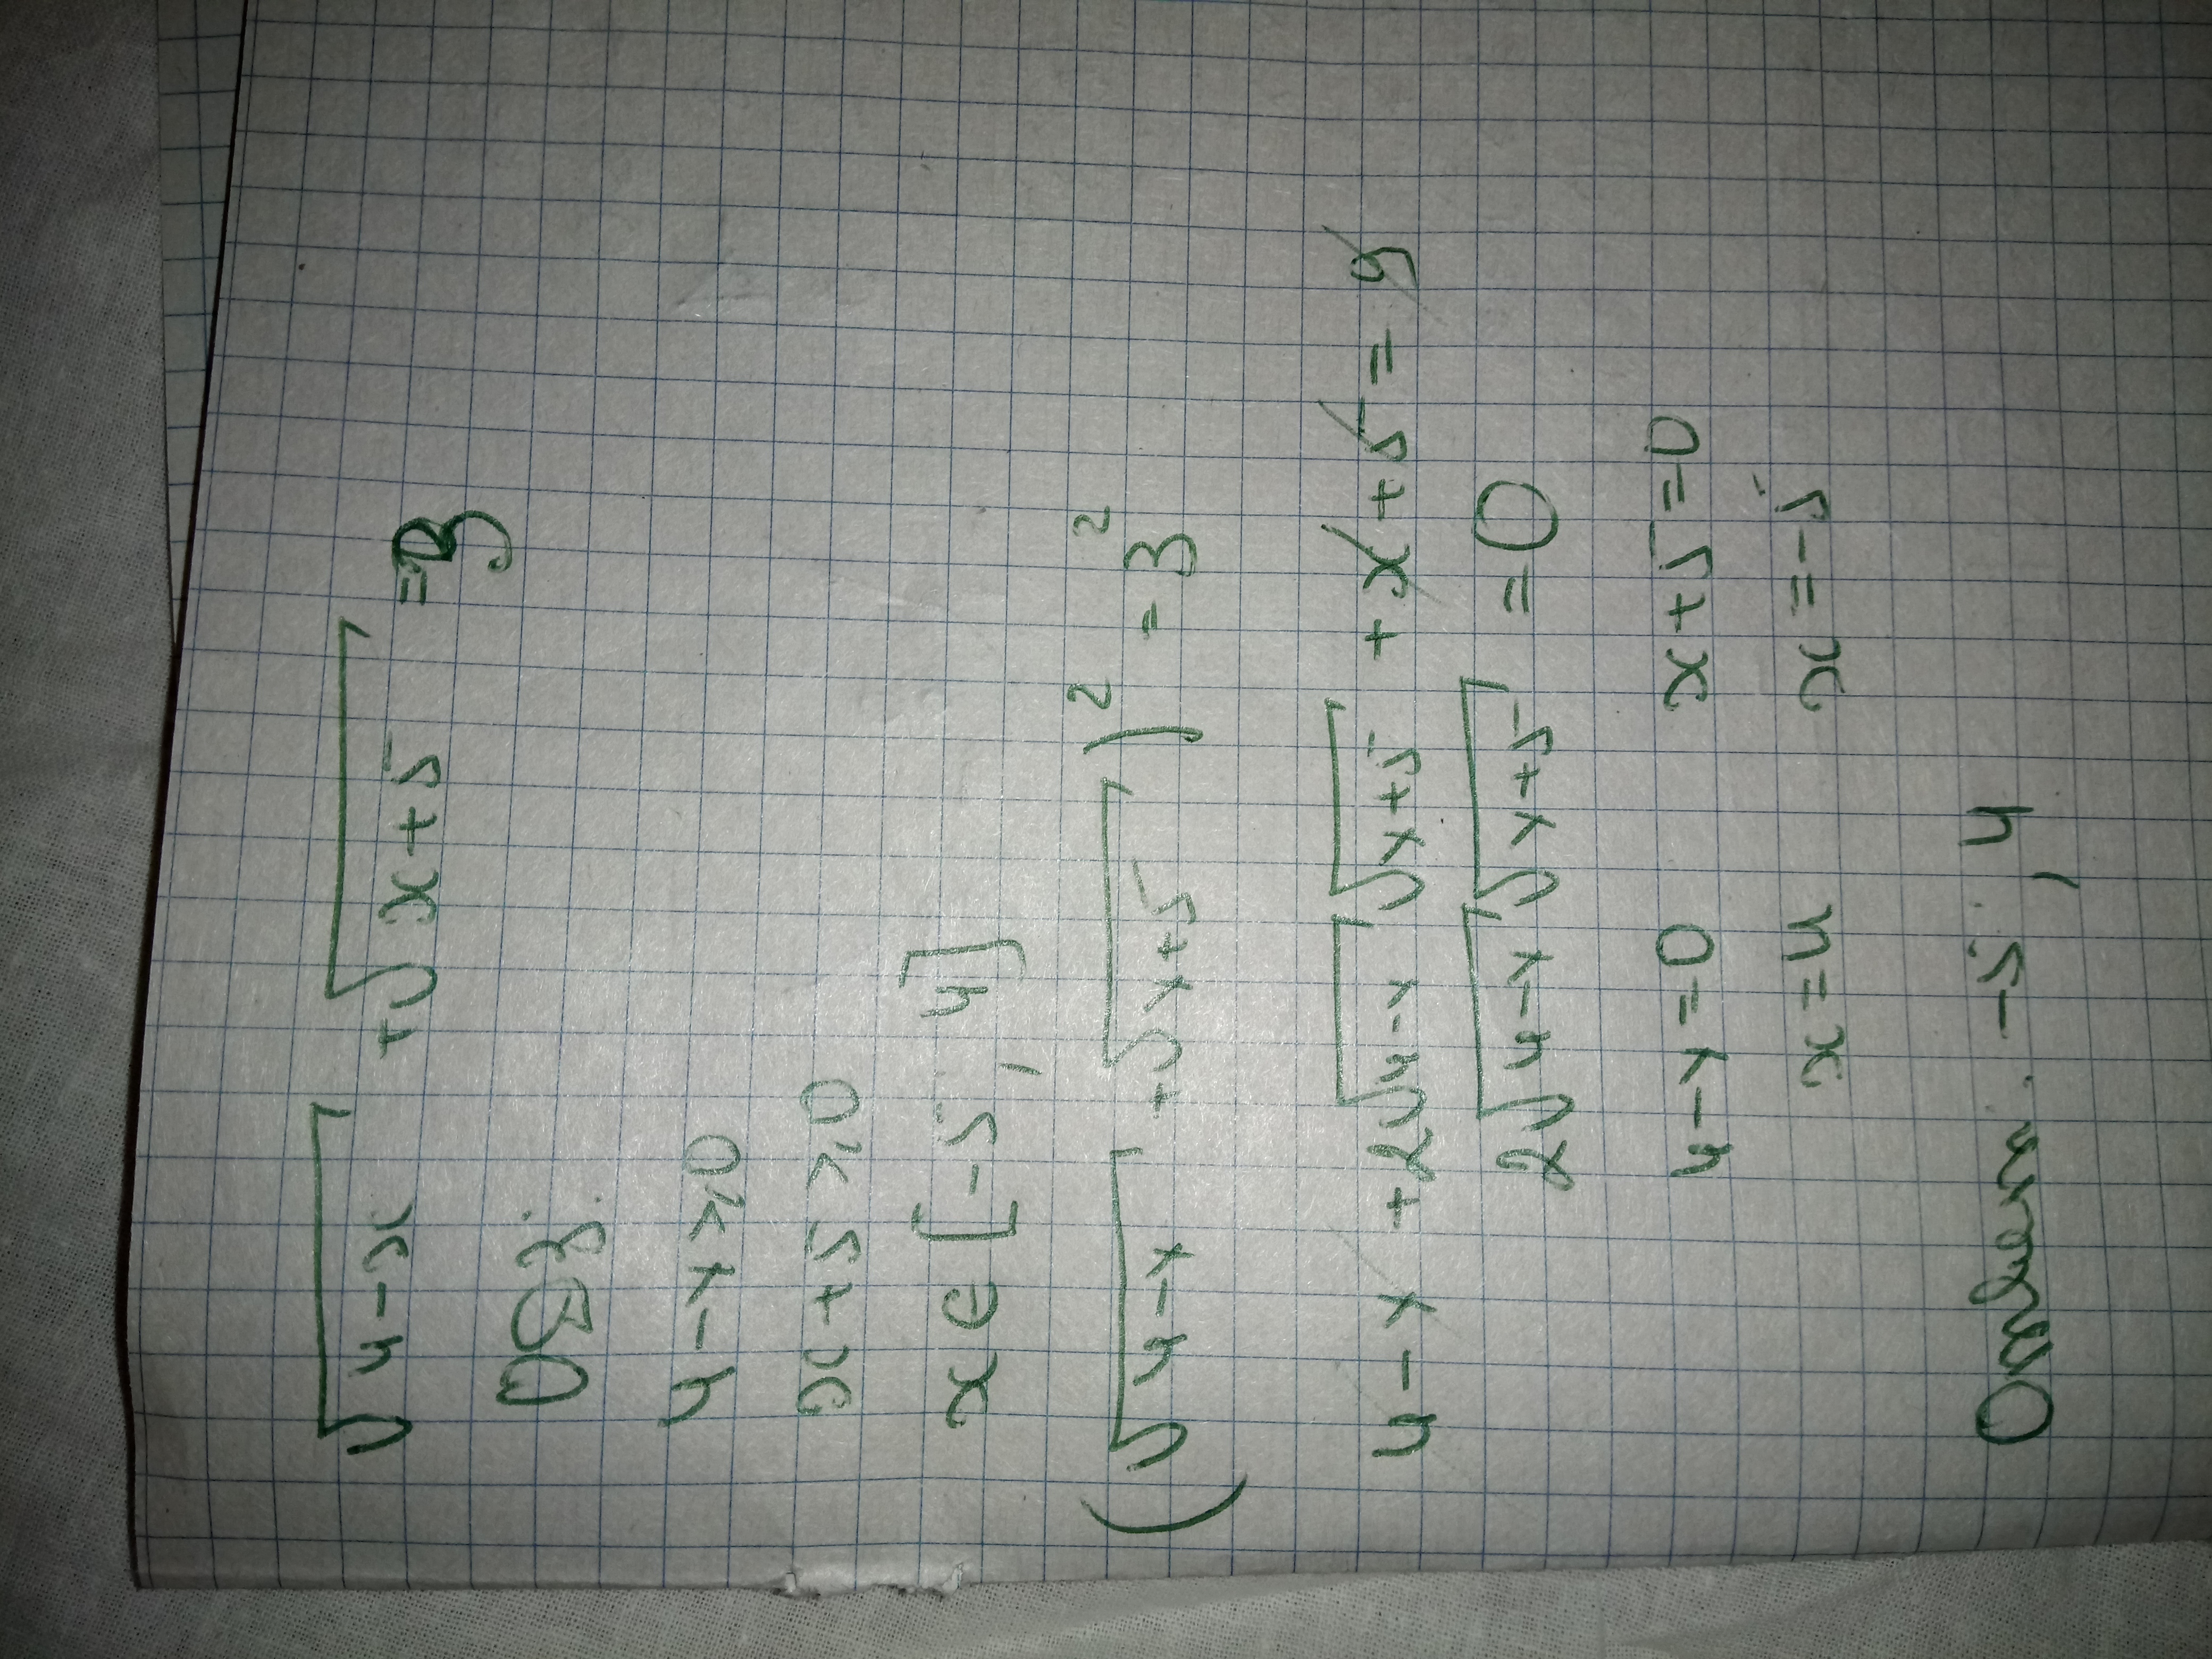 √4-x + √x+5 = 3
ОДЗ:
4-x≥0
x+5≥0
x∈[-5, 4]
(√4-x + √x+5)² = 3²
4-x+2√4-x √x+5 + x+5 = 9
2√4-x √x+5 = 0
4-x=0 x+5=0
x=4 x=-5
Ответ: -5, 4